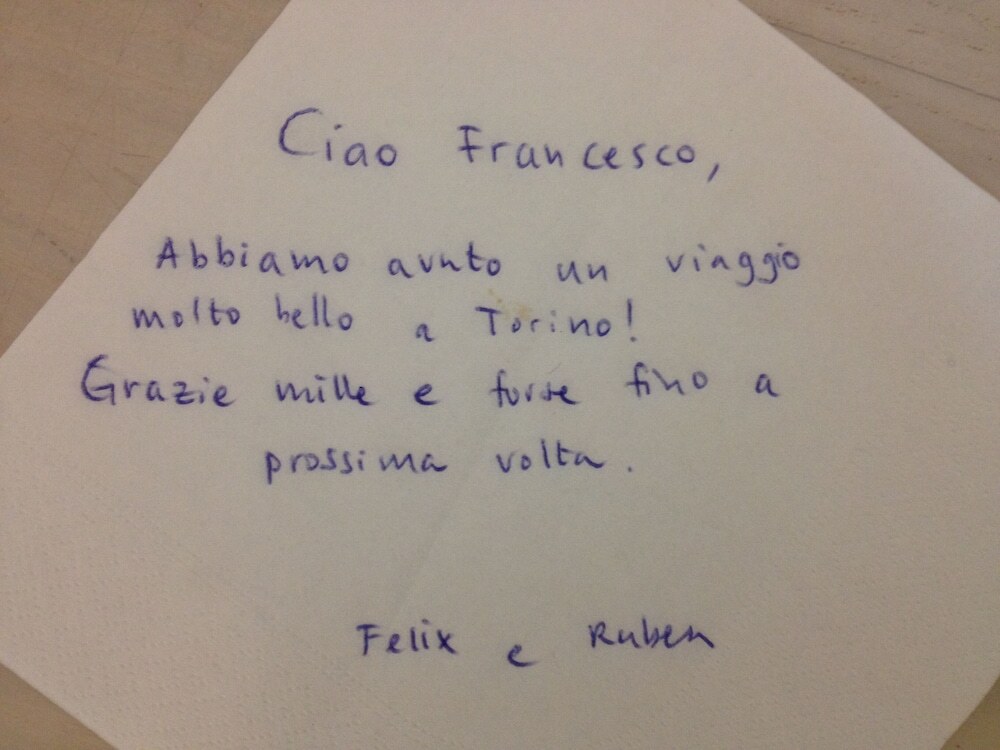 Ciao Francesco,
Abbiamo avuto un viaggio
molto bello a Torino!
Grazie mille e forse fino a
prossima volta.
Felix e Ruben